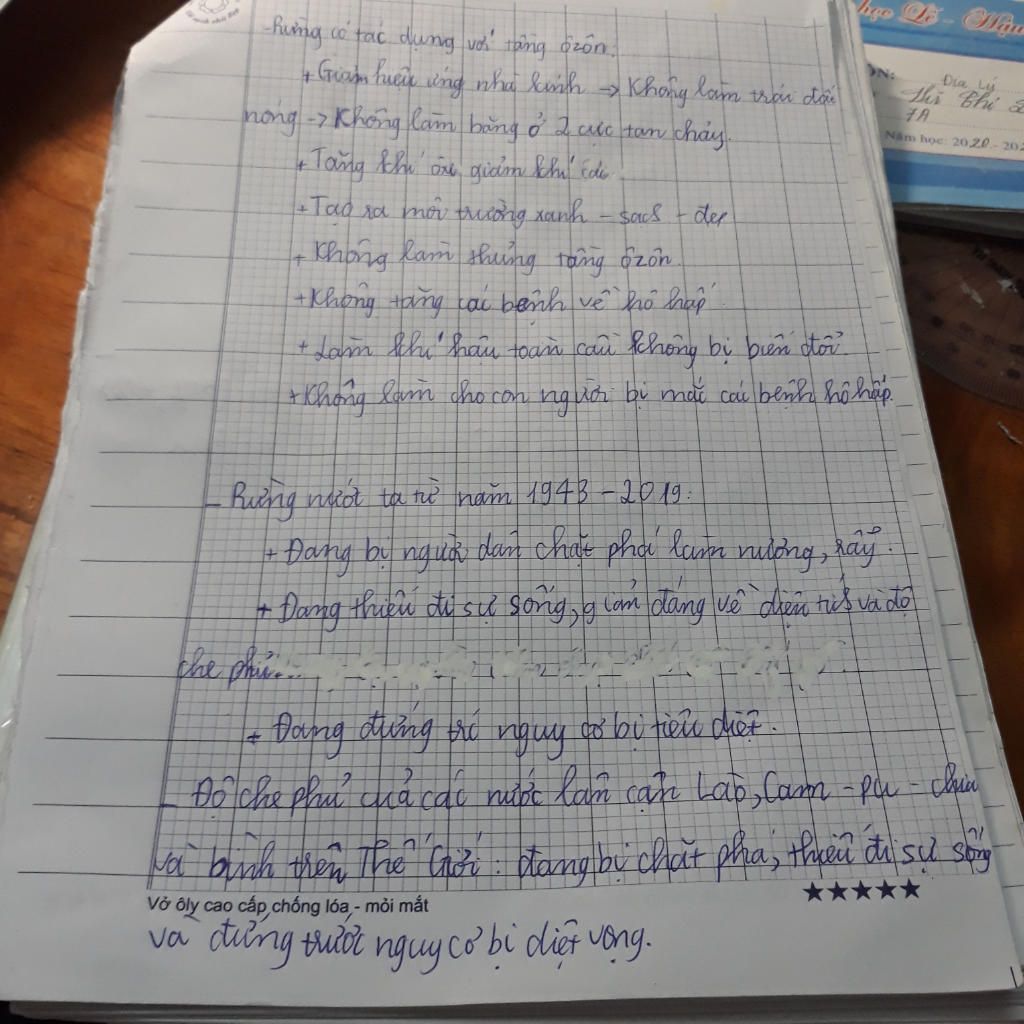 -Rừng có tác dụng với tầng ôzôn:
+ Giảm hiệu ứng nhà kính → Không làm trái đất
nóng → Không làm băng ở 2 cực tan chảy.
+ Tăng khí ôxi, giảm khí
+ Tạo ra môi trường xanh - sạch - đẹp
+ Không làm thủng tầng ôzôn.
+ Không tăng các bệnh về hô hấp
+ Làm khí hậu toàn cầu không bị biến đổi.
+ Không làm cho con người bị mắc các bệnh hô hấp.
- Rừng nước ta từ năm 1943 - 2019:
+ Đang bị người dân chặt phá làm nương, rẫy.
+ Đang thiếu đi sự sống, giảm đáng về diện tích và độ
che phủ...
+ Đang đứng trc nguy cơ bị tiêu diệt.
- Độ che phủ của các nước lân cận Lào, Cam - pu - chia
và bình trên Thế Giới: đang bị chặt phá, thiếu đi sự sống
Vở ôly cao cấp, chống lóa - mỏi mắt
★★★★★
và đứng trước nguy cơ bị diệt vong.
học Lễ - Hậu
Địa Lý
Thị
7A
Năm học: 2020 - 202